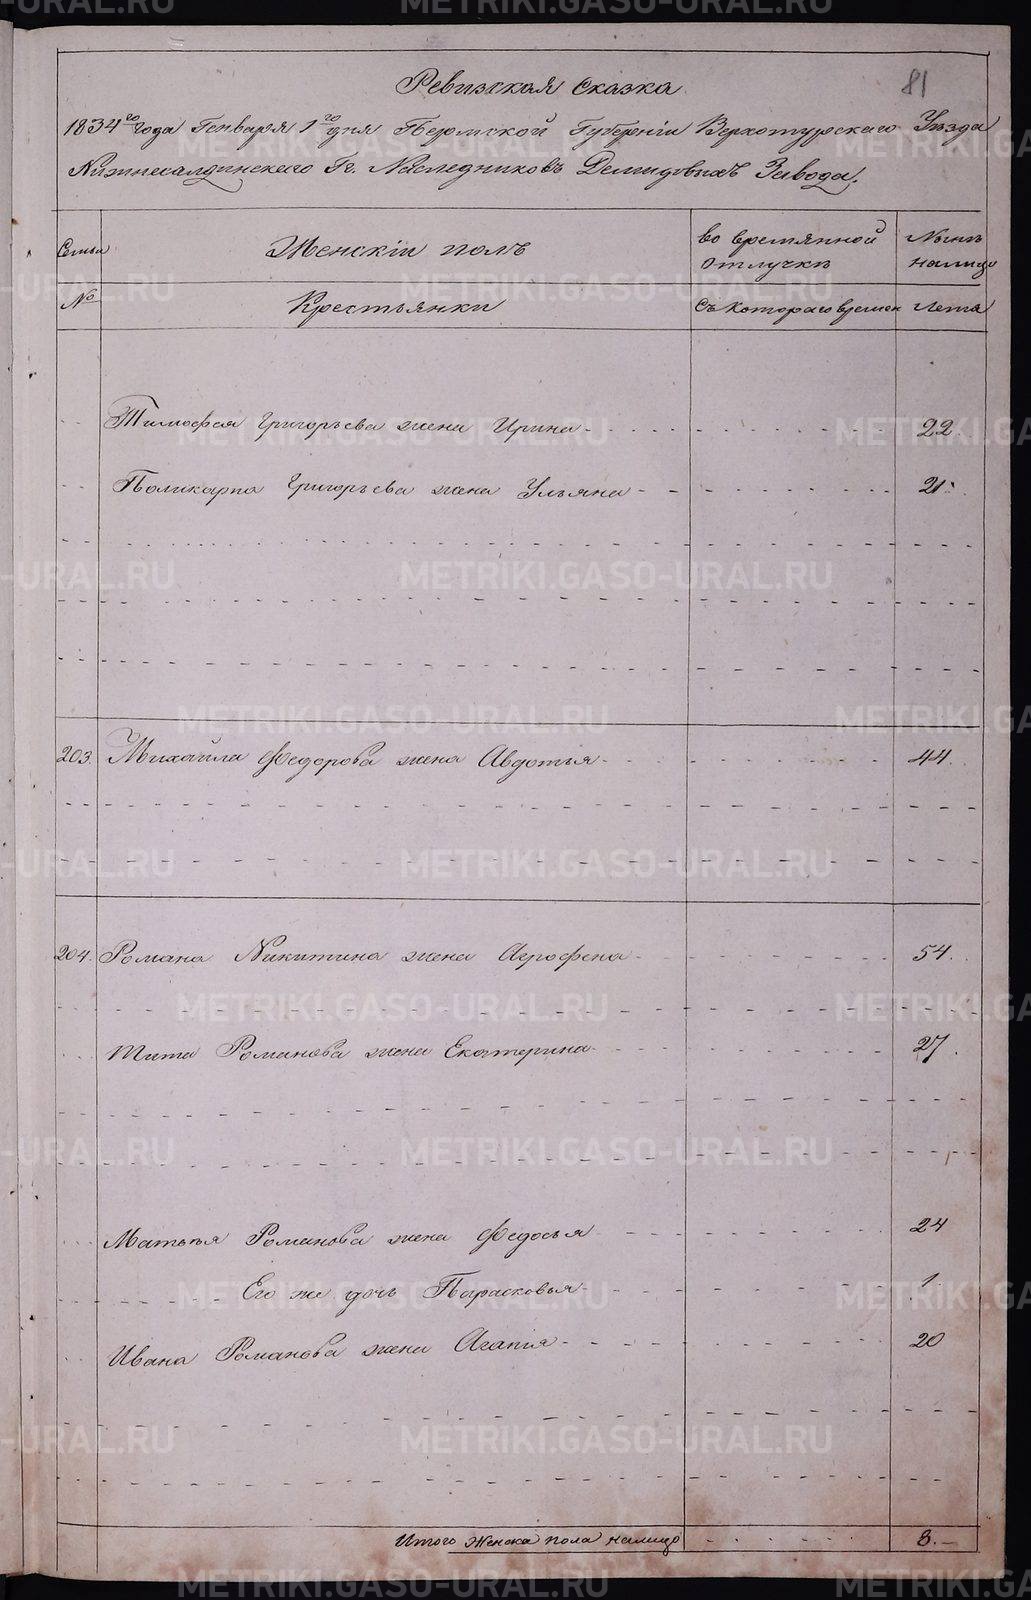 81
Ревизская сказка
1834го года Генваря 1го дня Пермской Губернiи Верхотурскаго Уѣзда
Нижнесалдинскаго Гг. Наслѣдниковъ Демидовыхъ Завода.
Семьи Женскiи полъ во времянной отлучкѣ Нынѣ налицо
№ Крестьянки Съ котораго времен Лета
Тимофея Григорьева жена Ирина 22.
Поликарпа Григорьева жена Ульяна 21.
203. Михайла Федорова жена Авдотья 44.
204. Романа Никитина жена Агрофена 54.
Тита Романова жена Екатерина 27.
Матвѣя Романова жена Федосья 24
Его же дочь Парасковья 1.
Ивана Романова жена Агапiя 20
Итого женска пола налицо 8.
METRIKI.GASO-URAL.RU